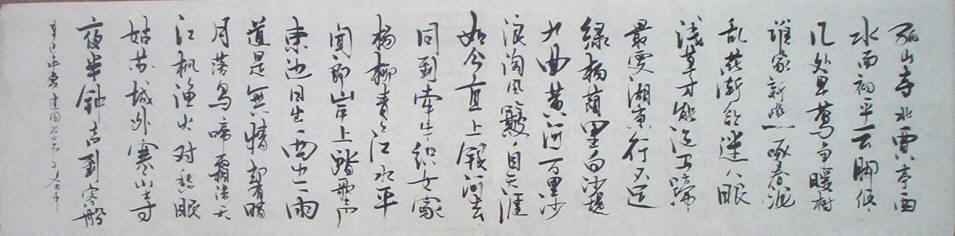 孤山寺北贾亭西
水面初平云脚低
几处早莺争暖树
谁家新燕啄春泥
乱花渐欲迷人眼
浅草才能没马蹄
最爱湖东行不足
绿杨荫里白沙堤
九曲黄河万里沙
浪淘风簸自天涯
如今直上银河去
同到牵牛织女家
杨柳青々江水平
闻郎岸上踏歌声
东边日出西边雨
道是无情却有晴
月落乌啼霜满天
江枫渔火对愁眠
姑苏城外寒山寺
夜半钟声到客船
辛巳年 建国